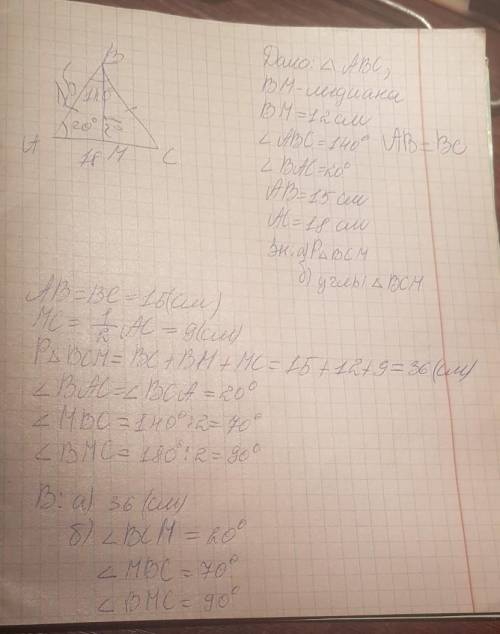 B
15
140°
20°
12
A
18 M
C
Дано: △ ABC,
BM - медиана
BM = 12 см
∠ ABC = 140° AB = BC
∠ BAC = 20°
AB = 15 см
AC = 18 см
Зн. а) P△BCM
б) углы △ BCM
AB = BC = 15 (см)
MC = 1/2 AC = 9 (см)
P△BCM = BC + BM + MC = 15 + 12 + 9 = 36 (см)
∠ BAC = ∠ BCA = 20°
∠ MBC = 140° : 2 = 70°
∠ BMC = 180° : 2 = 90°
В: а) 36 (см)
б) ∠ BCM = 20°
∠ MBC = 70°
∠ BMC = 90°